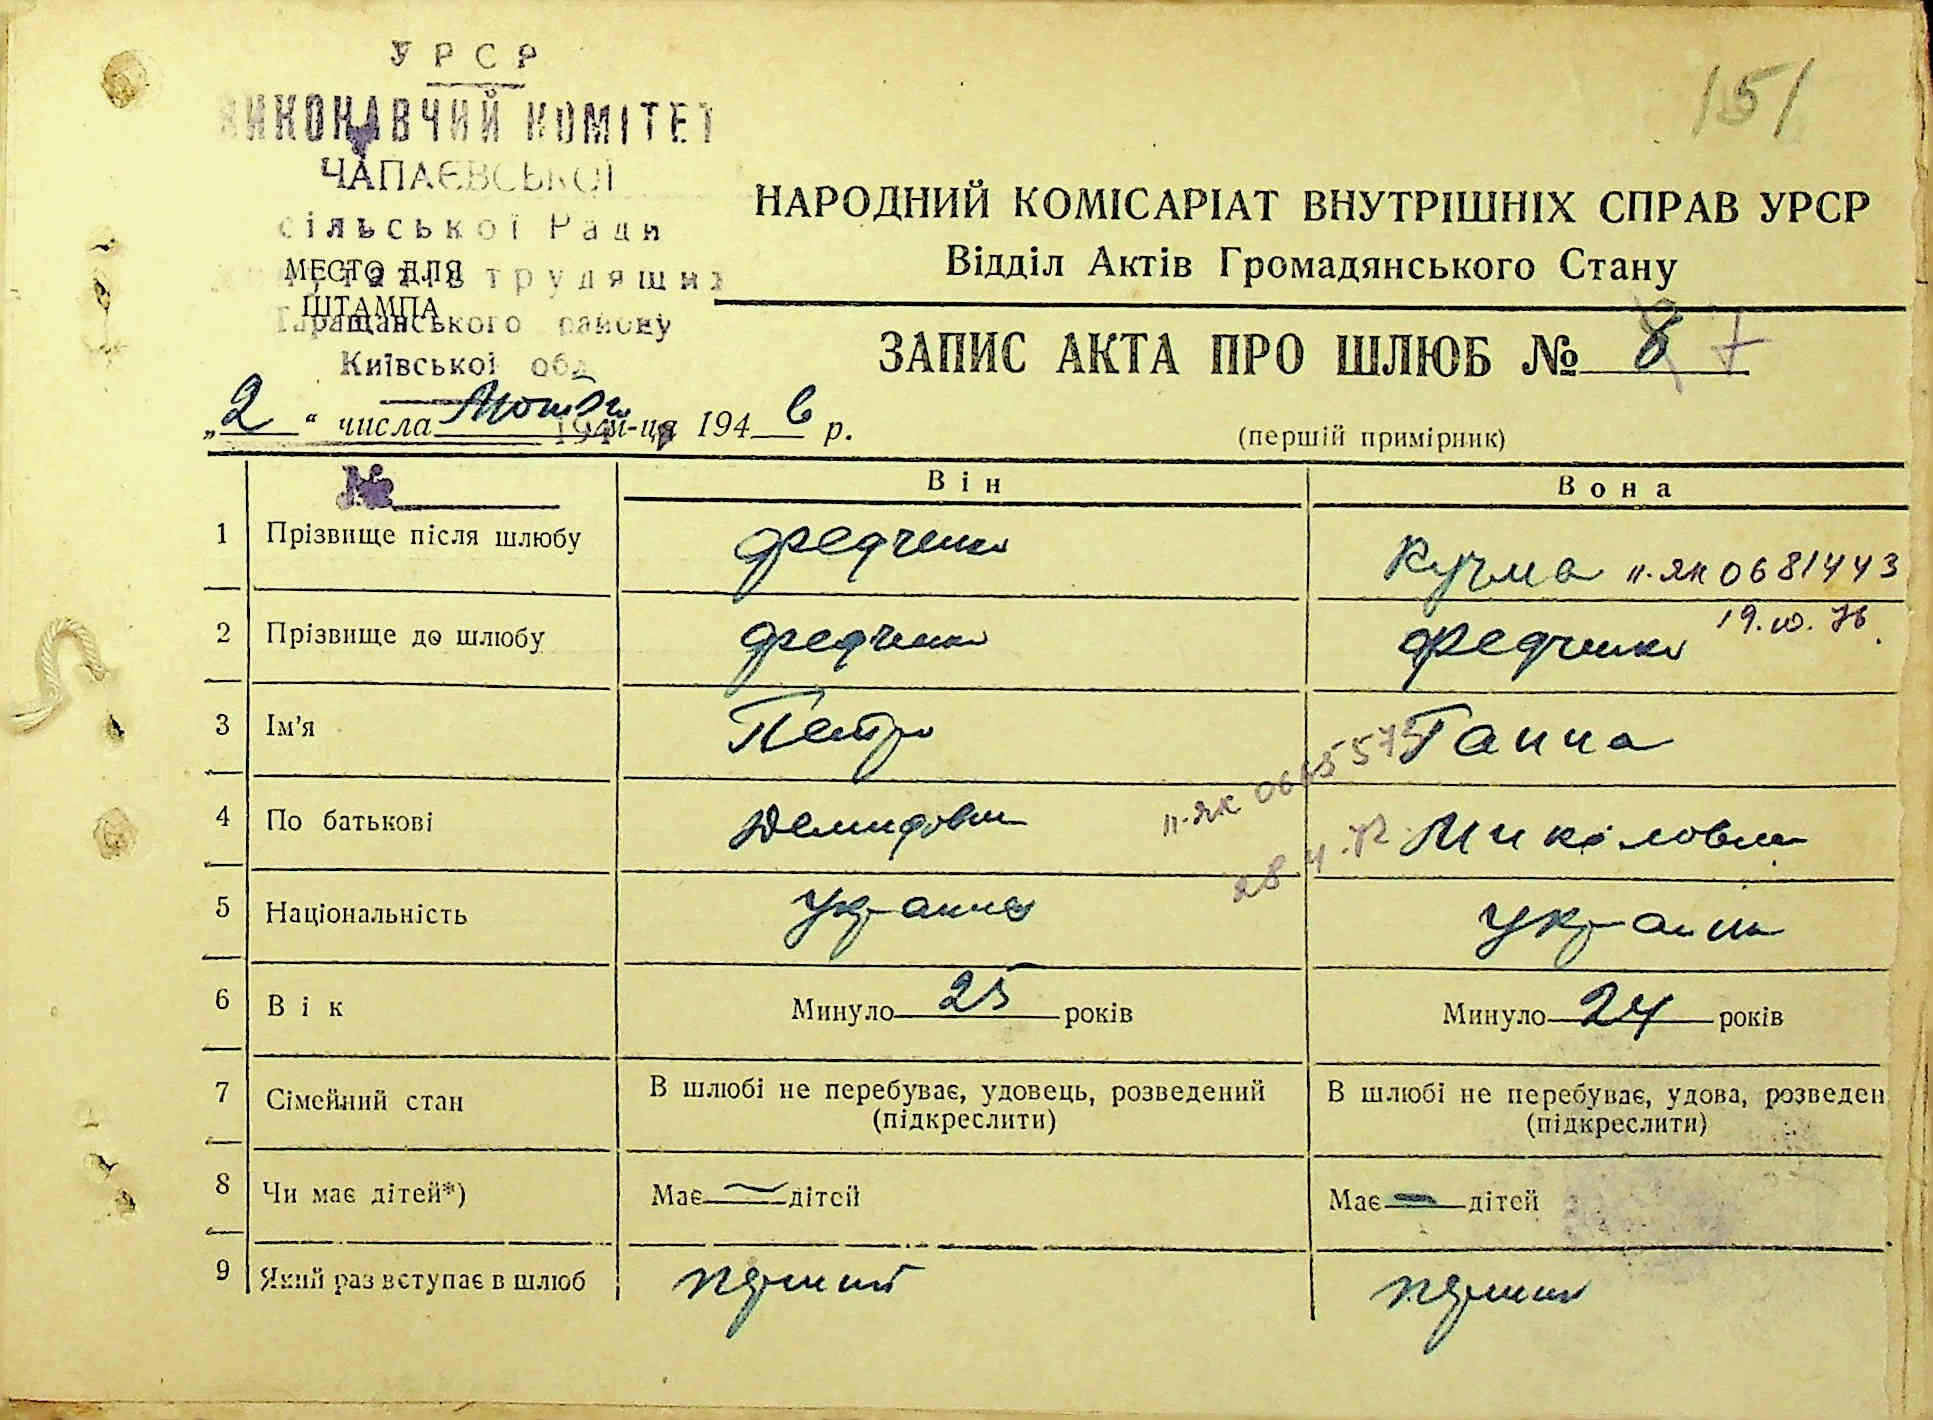 151
УРСР
ВИКОНАВЧИЙ КОМІТЕТ
ЧАПАЄВСЬКОЇ
сільської Ради
трудящих
МЕСТО ДЛЯ
ШТАМПА
Таращанського району
Київської обл
НАРОДНИЙ КОМІСАРІАТ ВНУТРІШНІХ СПРАВ УРСР
Відділ Актів Громадянського Стану
ЗАПИС АКТА ПРО ШЛЮБ № 8 7
„2“ числа м-ця 1946 р.
(перший примірник)
№
Він Вона
1 Прізвище після шлюбу Федченко Кучма п. ЯК 0681443
19.10.76
2 Прізвище до шлюбу Федченко Федченко
3 Ім'я Петро Ганна
4 По батькові Демидович Миколовна
п. ЯК
5 Національність
6 Вік Минуло 25 років Минуло 24 років
7 Сімейний стан В шлюбі не перебуває, удовець, розведений (підкреслити) В шлюбі не перебуває, удова, розведен (підкреслити)
8 Чи має дітей*) Має — дітей Має — дітей
9 Який раз вступає в шлюб